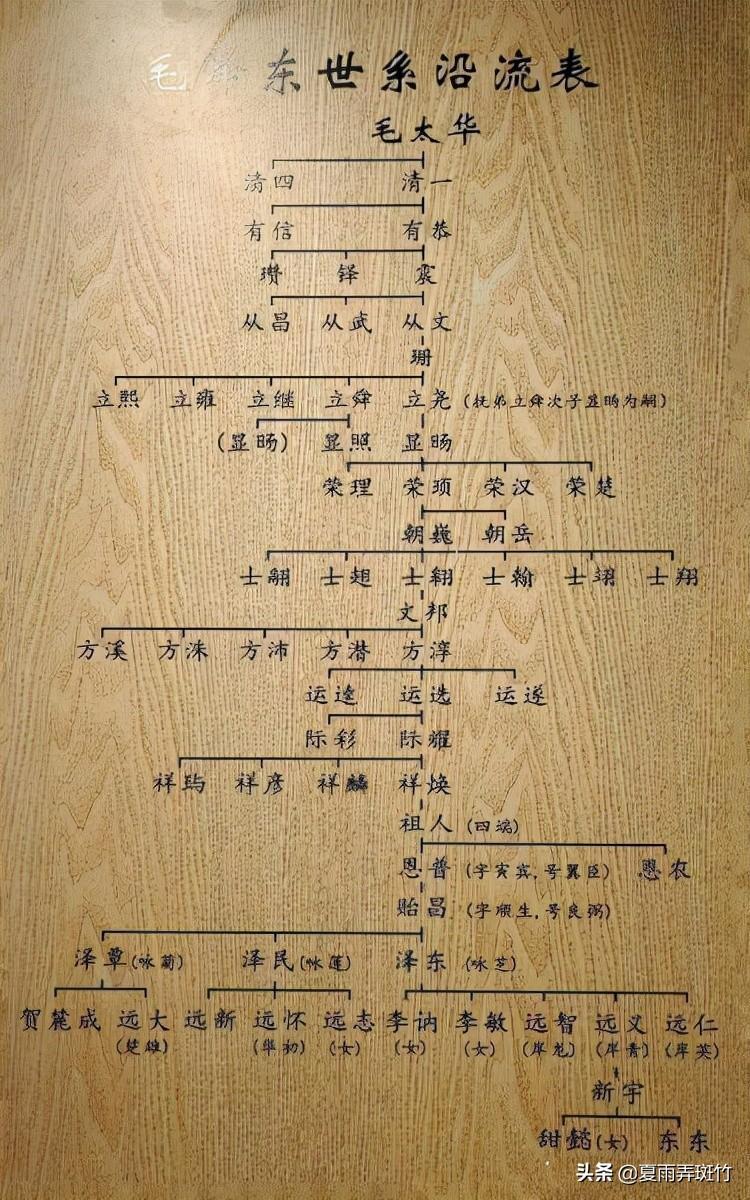 毛泽东世系沿流表
毛太华
清四 清一
有信 有恭
瓒 铎 震
从昌 从武 从文
珊
立熙 立雍 立继 立舜 立尧 (抚弟立舜次子显旸为嗣)
(显旸) 显照 显旸
荣理 荣顼 荣汉 荣楚
朝巍 朝岳
士翮 士翘 士翱 士翰 士翊 士翔
文邦
方溪 方洙 方沛 方潜 方淳
运逵 运选 运遂
际彩 际耀
祥玙 祥彦 祥麟 祥焕
祖人 (四端)
恩普 (字寅宾,号翼臣) 恩农
贻昌 (字顺生,号良弼)
泽覃 (咏菊) 泽民 (咏莲) 泽东 (咏芝)
贺麓成 远大 远新 远怀 远志 李讷 李敏 远智 远义 远仁
(楚雄) (华初) (女) (女) (女) (岸龙) (岸青) (岸英)
新宇
甜懿(女) 东东
头条 @夏雨弄斑竹